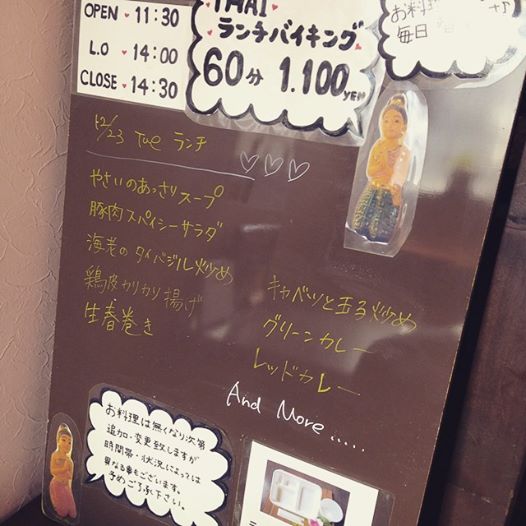 OPEN ♥ 11:30
L.O ♥ 14:00
CLOSE ♥ 14:30
THAI
ランチバイキング
60分 1.100 YEN
お料理
毎日
12/23 Tue ランチ
やさいのあっさりスープ
豚肉スパイシーサラダ
海老のタイバジル炒め
鶏皮カリカリ揚げ
生春巻き
キャベツと玉子炒め
グリーンカレー
レッドカレー
And More.....
お料理は無くなり次第
追加・変更致しますが
時間帯・状況によっては
異なる事もございます。
予めご了承下さい。